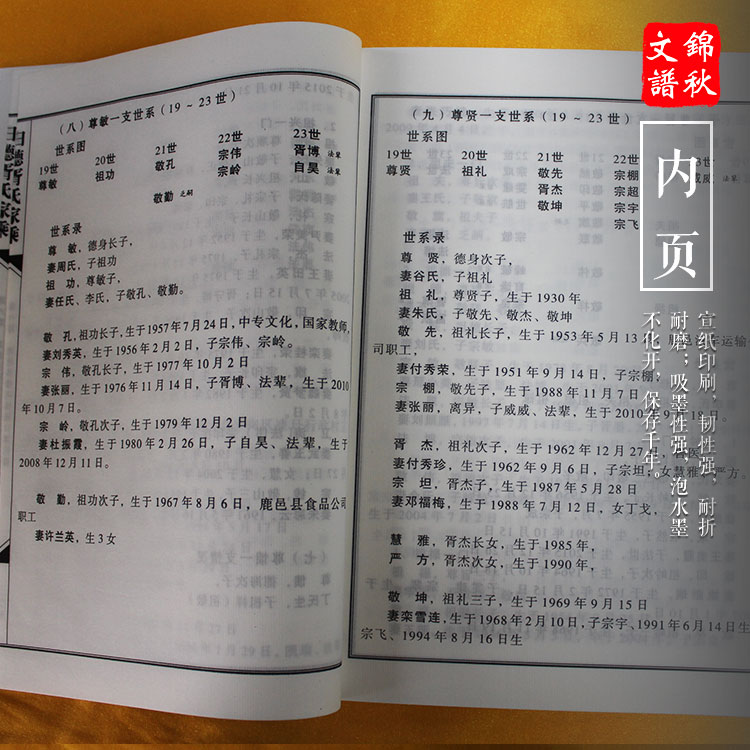 （八）尊敏一支世系（19～23世）
世系图
19世 20世 21世 22世 23世
尊敏 祖功 敬孔 宗伟 胥博 法辈
宗岭 自昊 法辈
敬勤 乏嗣
世系录
尊 敏，德身长子，
妻周氏，子祖功
祖 功，尊敏子，
妻任氏、李氏，子敬孔、敬勤。
敬 孔，祖功长子，生于1957年7月24日，中专文化，国家教师，
妻刘秀英，生于1956年2月2日，子宗伟、宗岭。
宗 伟，敬孔长子，生于1977年10月2日
妻张丽，生于1976年11月14日，子胥博、法辈，生于2010
年10月7日。
宗 岭，敬孔次子，生于1979年12月2日
妻杜振霞，生于1980年2月26日，子自昊、法辈，生于
2008年12月11日。
敬 勤，祖功次子，生于1967年8月6日，鹿邑县食品公司
职工
妻许兰英，生3女
（九）尊贤一支世系（19～23世）
世系图
19世 20世 21世 22世 23世
尊贤 祖礼 敬先 宗棚 威威 法辈
胥杰 宗超
敬坤 宗宇
宗飞
世系录
尊 贤，德身次子，
妻谷氏，子祖礼
祖 礼，尊贤子，生于1930年
妻朱氏，子敬先、敬杰、敬坤
敬 先，祖礼长子，生于1953年5月13日，
运输
司职工，
妻付秀荣，生于1951年9月14日，子宗棚，
宗 棚，敬先子，生于1988年11月7日
妻张丽，离异，子威威、法辈，生于2010年9月19日。
胥 杰，祖礼次子，生于1962年12月27日，
医
妻付秀珍，生于1962年9月6日，子宗坦，女慧雅、严方。
宗 坦，胥杰子，生于1987年5月28日
妻邓福梅，生于1988年7月12日，女丁戈，
慧 雅，胥杰长女，生于1985年，
严 方，胥杰次女，生于1990年，
敬 坤，祖礼三子，生于1969年9月15日
妻栾雪连，生于1968年2月10日，子宗宇，1991年6月14日生
宗飞，1994年8月16日生
錦秋
文譜
内页
宣纸印刷，韧性强，耐折
耐磨；吸墨性强，泡水墨
不化开，保存千年。